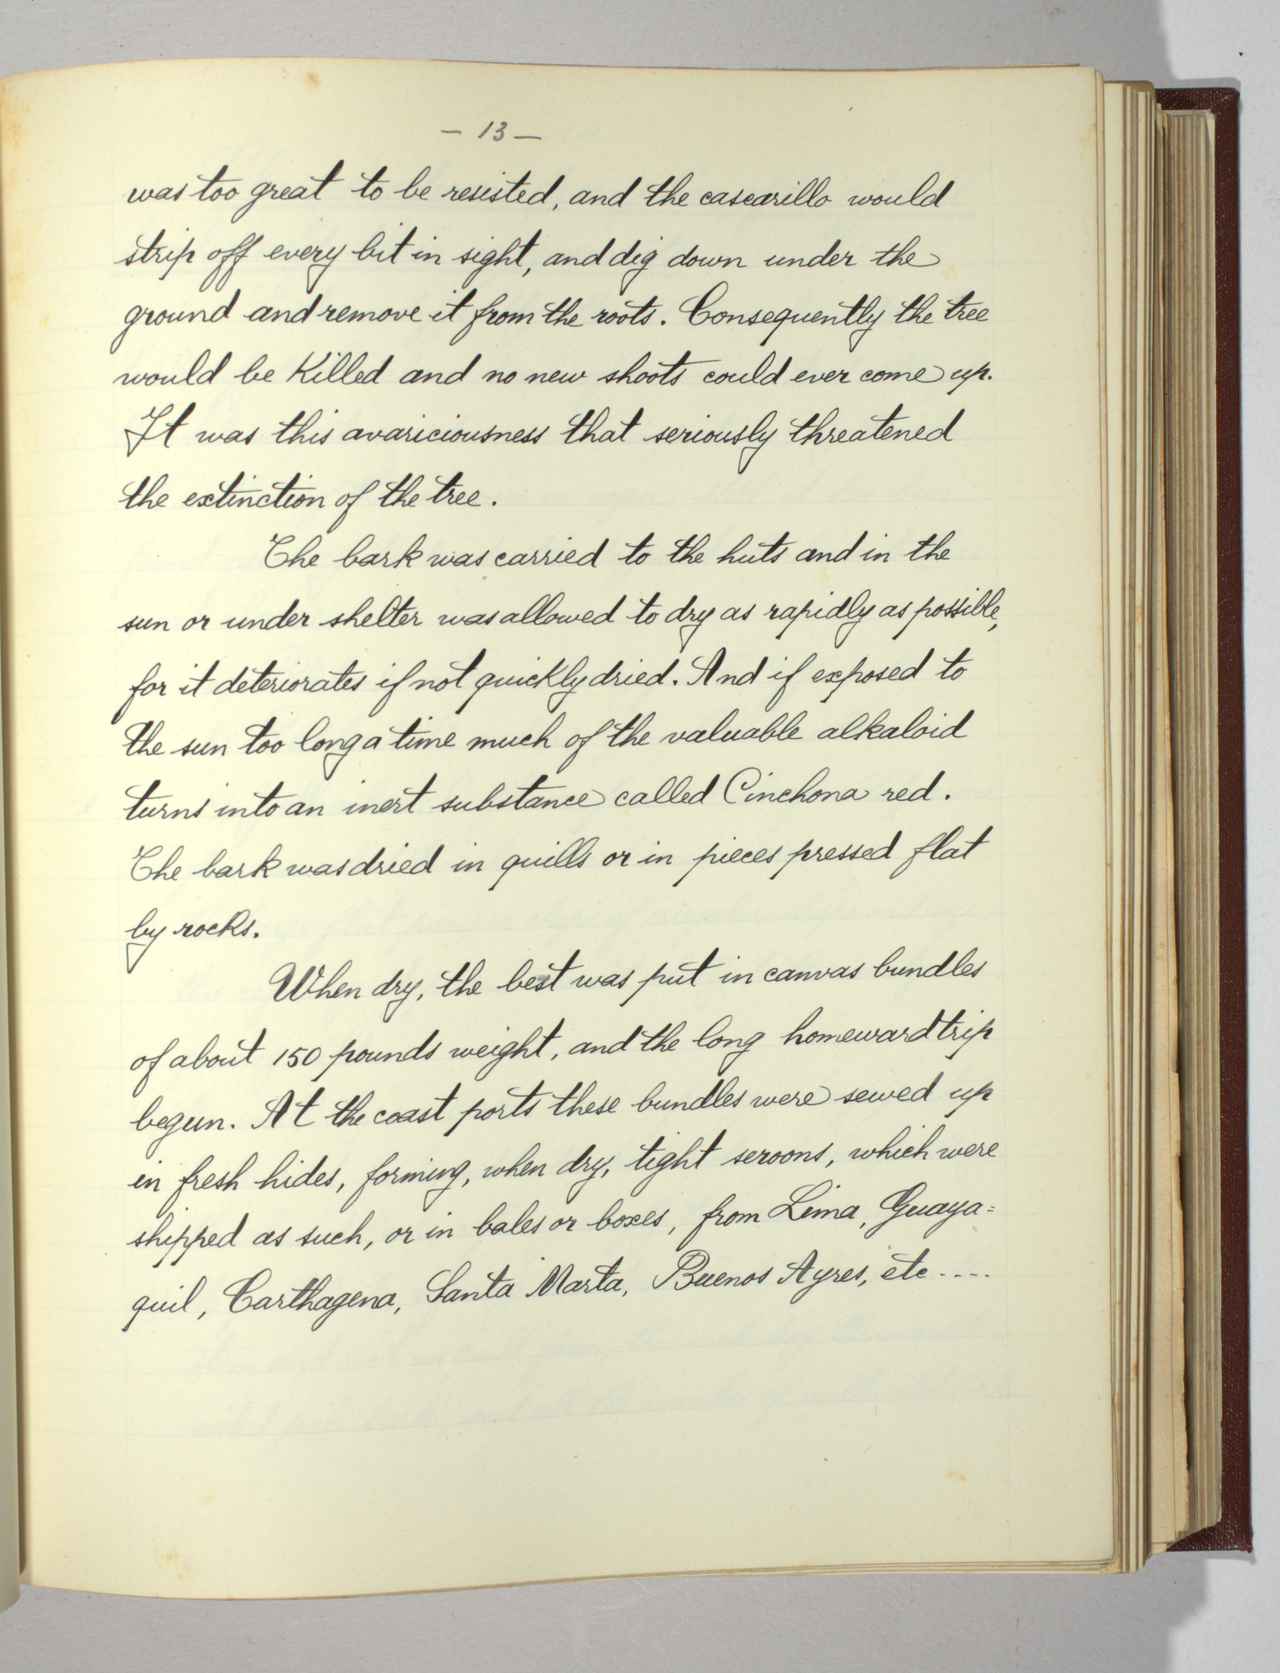 - 13 -
was too great to be resisted, and the cascarillo would
strip off every bit in sight, and dig down under the
ground and remove it from the roots. Consequently the tree
would be killed and no new shoots could ever come up.
It was this avariciousness that seriously threatened
the extinction of the tree.
The bark was carried to the huts and in the
sun or under shelter was allowed to dry as rapidly as possible,
for it deteriorates if not quickly dried. And if exposed to
the sun too long a time much of the valuable alkaloid
turns into an inert substance called Cinchona red.
The bark was dried in quills or in pieces pressed flat
by rocks.
When dry, the best was put in canvas bundles
of about 150 pounds weight, and the long homeward trip
begun. At the coast ports these bundles were sewed up
in fresh hides, forming, when dry, tight seroons, which were
shipped as such, or in bales or boxes, from Lima, Guaya=
quil, Carthagena, Santa Marta, Buenos Ayres, etc ....